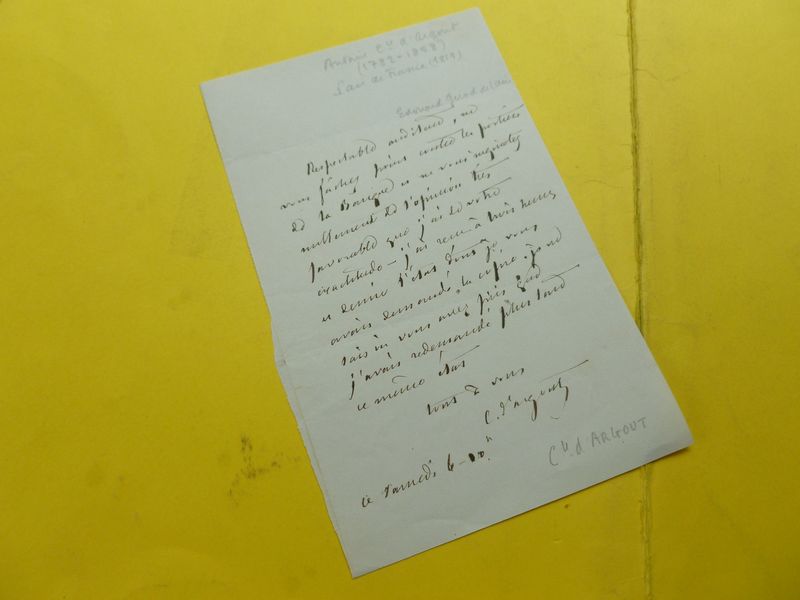 Antoine Cte d'Argout
(1782-1858)
Pair de France (1819)
Edouard Girod de l'Ain
Respectable auditeur, ne
vous fâchez point contre les portiers
de la Banque et ne vous inquietez
nullement de l'opinion très
favorable que j'ai de votre
exactitude - j'ai reçu à trois heures
ce dernier l'état dont je vous
avais demandé la copie. je ne
sais si vous avez
j'avais redemandé plus tard
ce même état
tout à vous
C. d'argout
ce samedi 6 -
Cte. d'ARGOUT